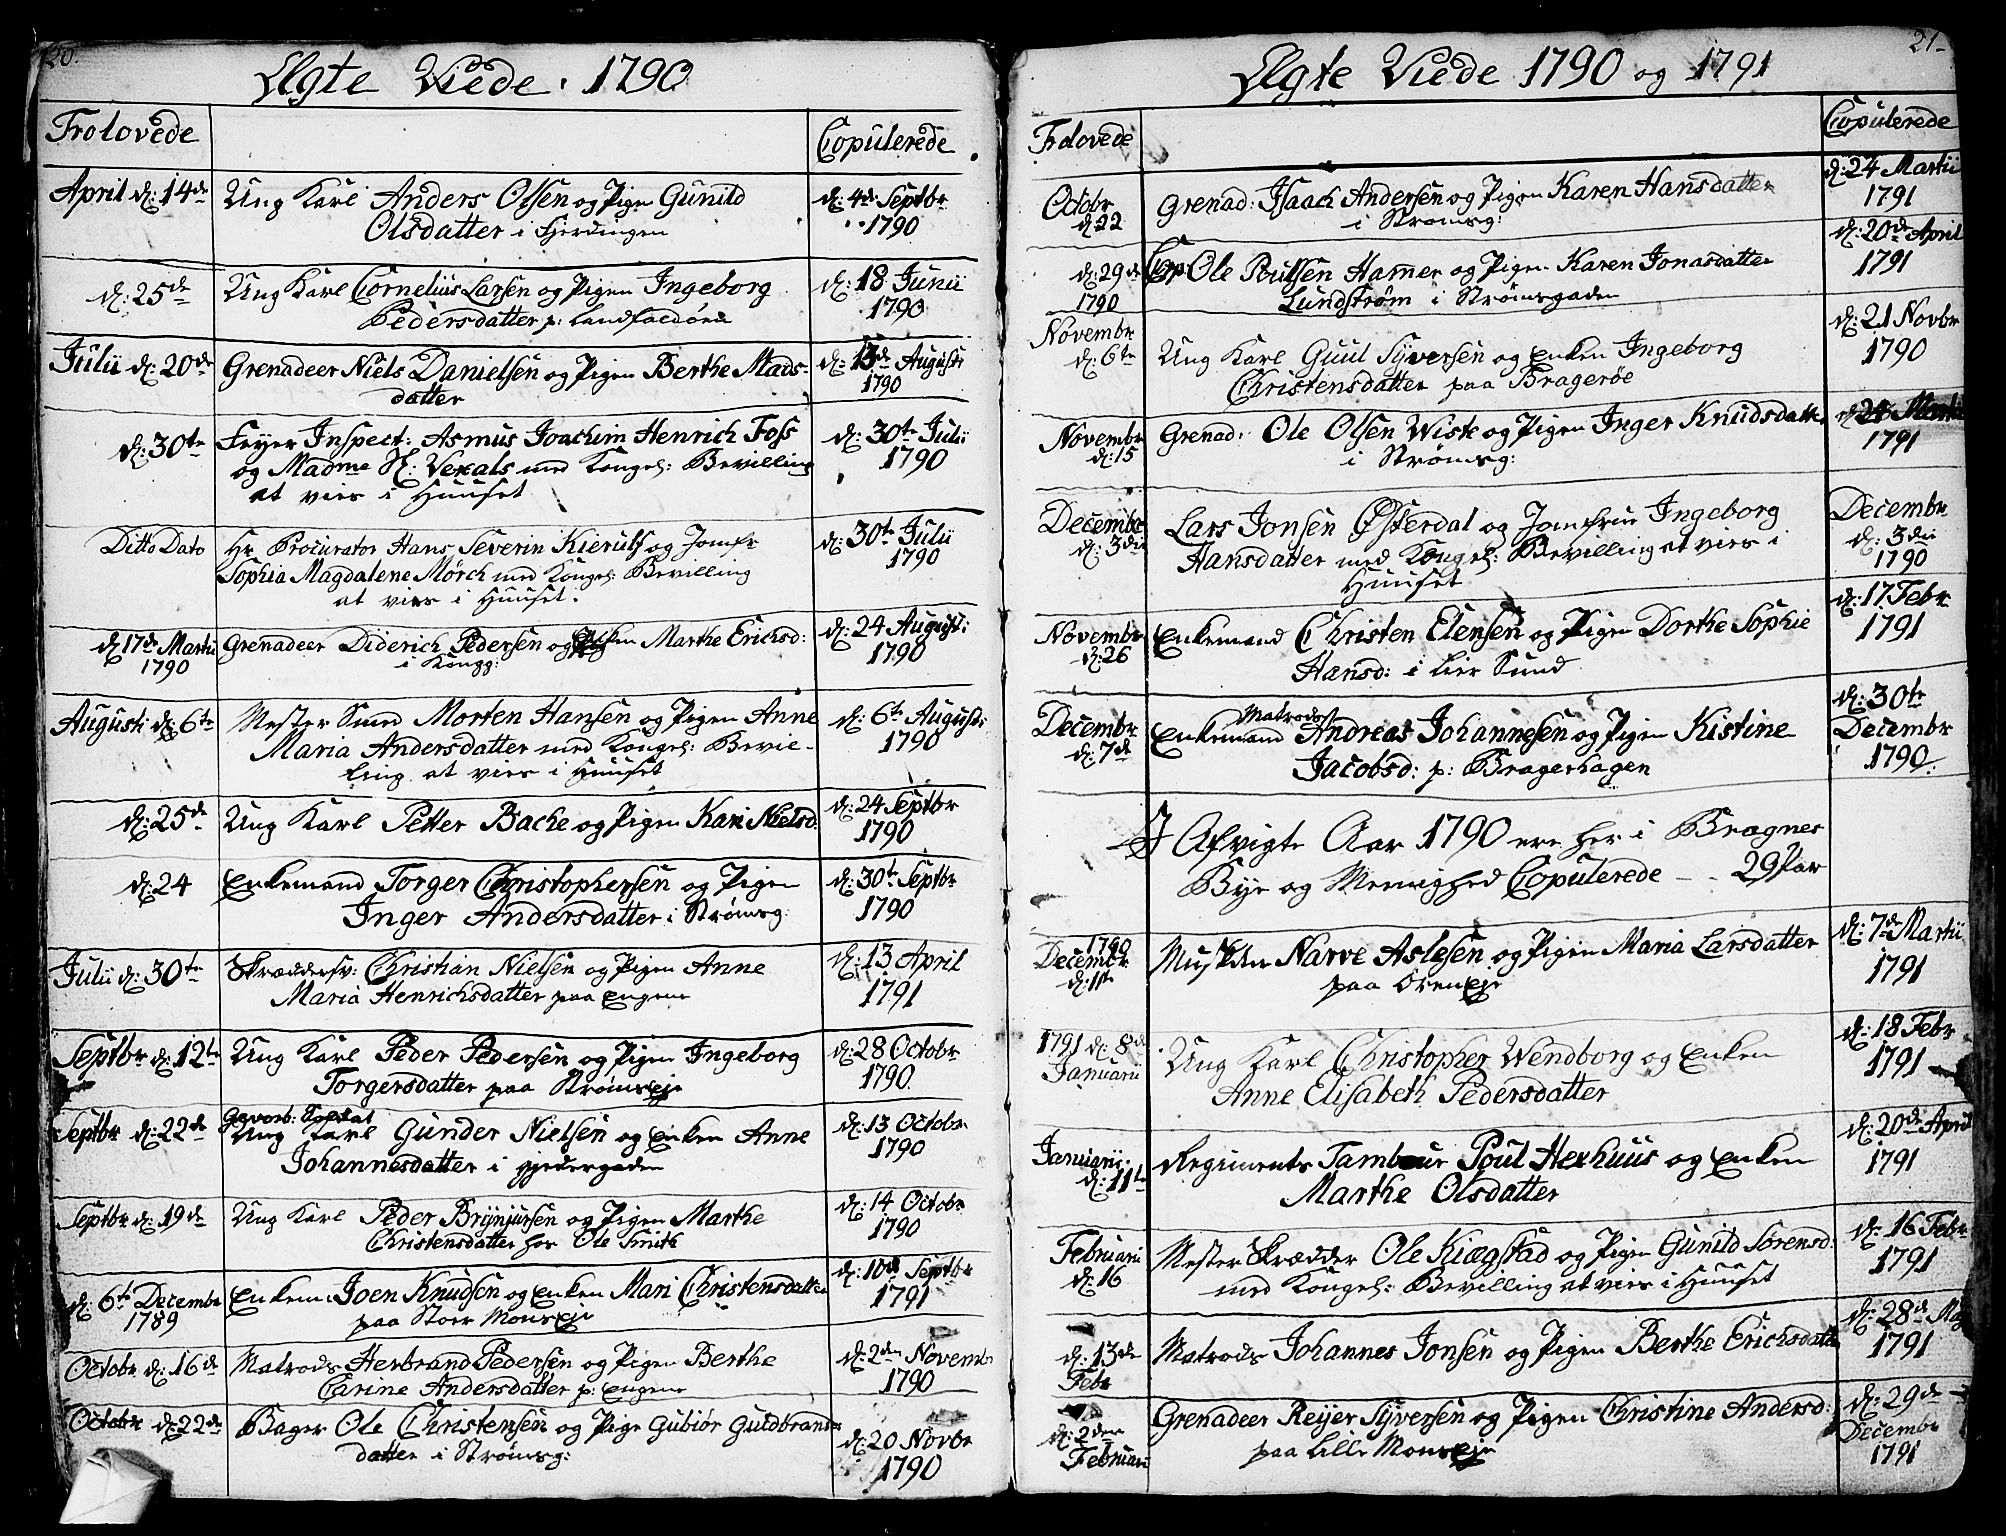 20.
Ægte Viede 1790
Trolovede
Copulerede
April d: 14de
Ung Karl Anders Olsen og Pigen Gunild
Olsdatter i Fjerdingen
d: 4de Septbr
1790
d: 25de
Ung Karl Cornelius Larsen og Pigen Ingeborg
Pedersdatter p: Landfaldøen
d: 18 Junii
1790
Julii d: 20de
Grenadeer Niels Danielsen og Pigen Berthe Mads-
datter
d: 13de Augusti
1790
d: 30te
Feyer Inspect: Asmus Joachim Henrich Foss
og Madme N: Vexals med Kongel: Bevilling
at vies i Huuset
d: 30te Julii
1790
Ditto Dato
Hr Procurator Hans Severin Kierulf og Jomfr
Sophia Magdalene Mørch med Kongel: Bevilling
at vies i Huuset.
d: 30te Julii
1790
d 17de Martii
1790
Grenadeer Diderich Pedersen og Enken Marthe Erichsd:
i Kongg:
d: 24 Augusti
1790
Augusti d: 6te
Mester Smed Morten Hansen og Pigen Anne
Maria Andersdatter med Kongel: Bevil-
ling at vies i Huuset
d: 6te Augusti
1790
d: 25de
Ung Karl Petter Bache og Pigen Kari Nielsd:
d: 24 Septbr
1790
d: 24
Enkemand Torger Christophersen og Pigen
Inger Andersdatter i Strømsg:
d: 30te Septbr
1790
Julii d: 30te
Skræddersv: Christian Nielsen og Pigen Anne
Maria Henrichsdatter paa Engene
d: 13 April
1791
Septbr d: 12te
Ung Karl Peder Pedersen og Pigen Ingeborg
Torgersdatter paa Strømsøe
d: 28 Octobr
1790
Septbr d: 22de
Gevorb: Soldat
Ung Karl Gunder Nielsen og Enken Anne
Johannesdatter i Gjedergaden
d: 13 Octobr
1790
Septbr d: 19de
Ung Karl Peder Brÿnjulsen og Pigen Marthe
Christensdatter hos Ole Smith
d: 14 Octobr
1790
d: 6te Decembr
1789
Enkem: Joen Knudsen og Enken Mari Christensdatter
paa Stoer Mons Eje
d: 10de Septbr
1791
Octobr d: 16de
Matrods Herbrand Pedersen og Pigen Berthe
Carine Andersdatter p: Engene
d: 2den Novembr
1790
Octobr d: 22de
Bager Ole Christensen og Pige Gubiör Guldbrands
datter i Strømsg:
d: 20 Novbr
1790
21.
Ægte Viede 1790 og 1791
Trolovede
Copulerede
Octobr
d. 22
Grenad: Isaach Andersen og Pigen Karen Hansdatter
i Strømsg:
d: 24 Martii
1791
d: 29de
1790
Ole Poulsen Hamer og Pigen Karen Jonasdatter
Lundstrøm i Strømsgaden
d: 20de April
1791
Novembr
d: 6te
Ung Karl Guul Syversen og Enken Ingeborg
Christensdatter paa Bragerøe
d: 21 Novbr
1790
Novembr
d: 15
Grenad: Ole Olsen Wiste og Pigen Inger Knudsdatter
i Strømsg:
d: 24 Martii
1791
Decembr
d: 3die
Lars Jonsen Østerdal og Jomfrue Ingeborg
Hansdatter med Kongel: Bevilling at vies i
Huuset
Decembr
d: 3die
1790
Novembr
d: 26
Enkemand Christen Elensen og Pigen Dorthe Sophie
Hansd: i Lier Sund
d: 17 Febr
1791
Decembr
d: 7de
Matrods
Enkemand Andreas Johannesen og Pigen Kistine
Jacobsd: p: Bragerhagen
d: 30te
Decembr
1790
I Afvigte Aar 1790 ere her i Bragnes
Bye og Menighed Copulerede - - 29 Par
1790
Decembr
d: 1te
Musketeer Narve Aslesen og Pigen Maria Larsdatter
paa Øren Eje
d: 7de Martii
1791
1791 d: 8de
Januarii
Ung Karl Christopher Wendborg og Enken
Anne Elisabeth Pedersdatter
d: 18 Febr
1791
Januarii
d: 11te
Regiments Tambour Poul Hexhuus og Enken
Marthe Olsdatter
d: 20de April
1791
Februarii
d: 16
Mester Skrædder Ole Kiægstad og Pigen Gunild Sørensd:
med Kongel: Bevilling at vies i Huuset
d: 16 Febr
1791
d: 13de
Febr
Matrods Johannes Jonsen og Pigen Berthe Erichsdatter
d: 28de
1791
d: 2den
Februarii
Grenadeer Reijer Syversen og Pigen Christine Andersd:
paa Lille Mons Eje
d: 29de
Decembr
1791